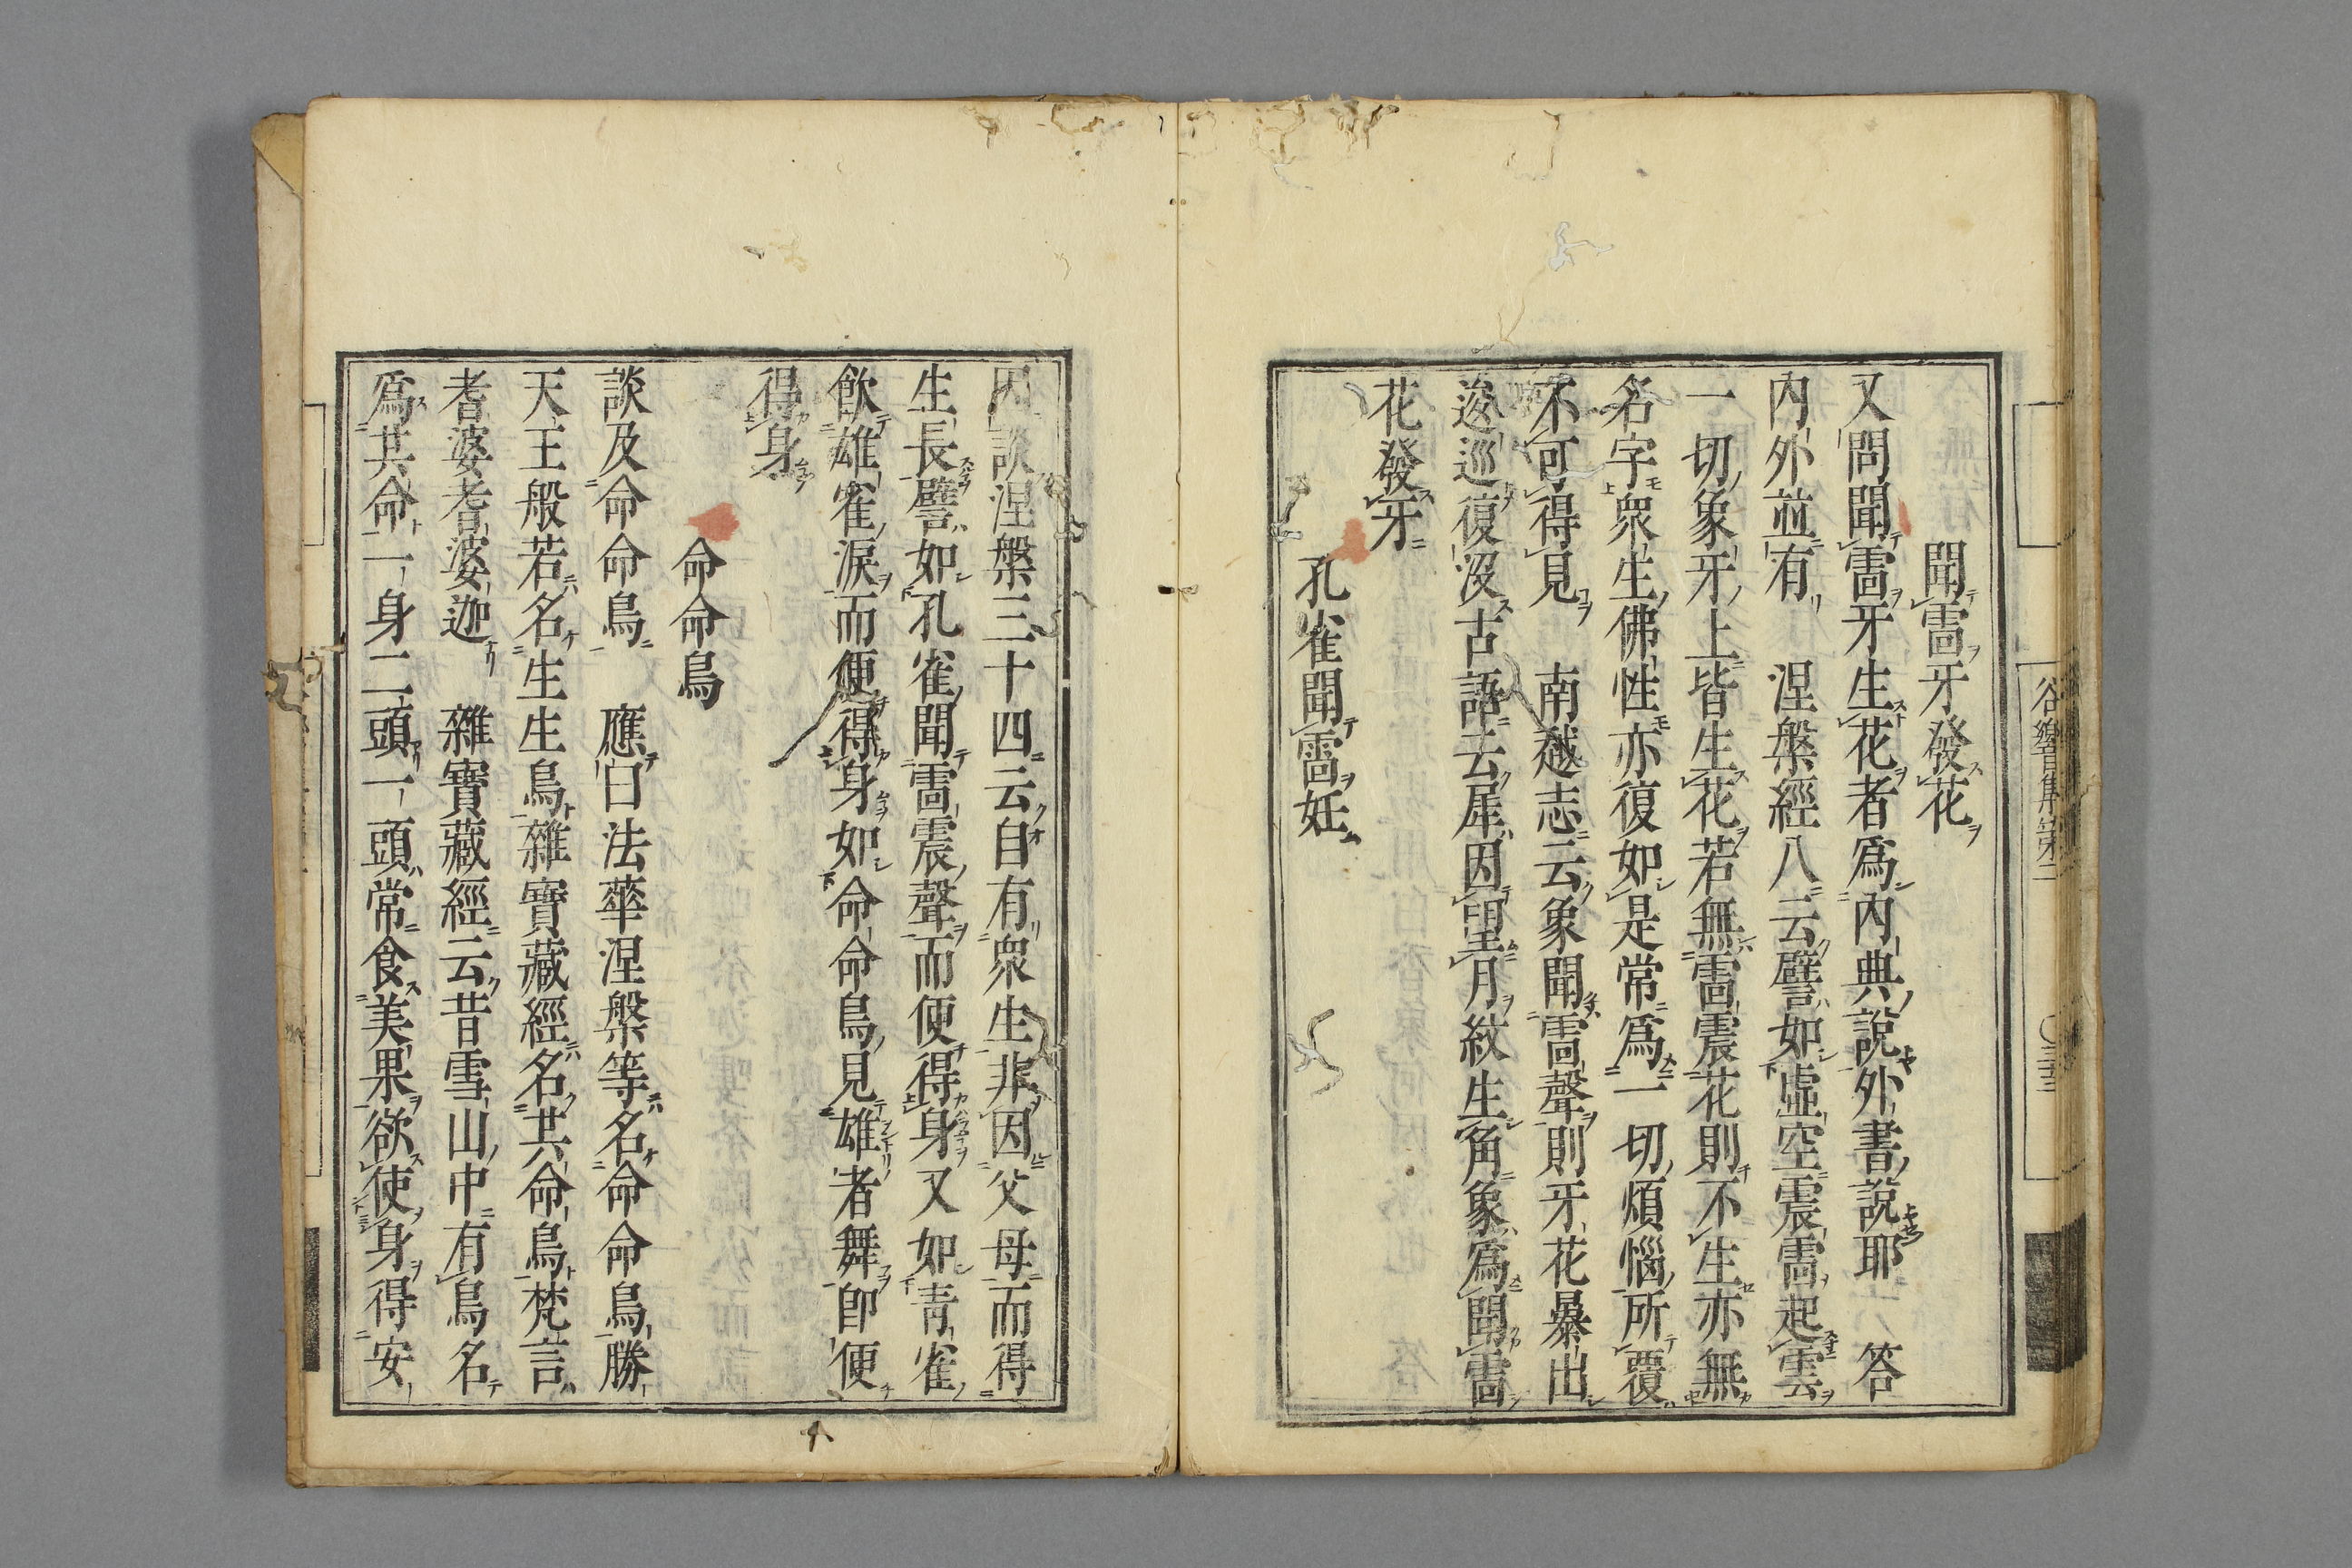 聞雷牙發花
又問聞雷牙生花者爲內典說外書說耶 答
內外並有 涅槃經八云譬如虛空震雷起雲
一切象牙上皆生花若無雷震花則不生亦無
名字衆生佛性亦復如是常爲一切煩惱所覆
不可得見 南越志云象聞雷聲則牙花暴出
逡巡復沒古語云犀因望月紋生角象爲聞雷
花發牙
孔雀聞雷妊
因談涅槃三十四云自有衆生非因父母而得
生長譬如孔雀聞雷震聲而便得身又如青雀
飮雄雀淚而便得身如命命鳥見雄者舞卽便
得身
命命鳥
談及命命鳥 應曰法華涅槃等名命命鳥勝
天王般若名生生鳥雜寶藏經名共命鳥梵言
耆婆耆婆迦 雜寶藏經云昔雪山中有鳥名
爲共命一身二頭一頭常食美果欲使身得安